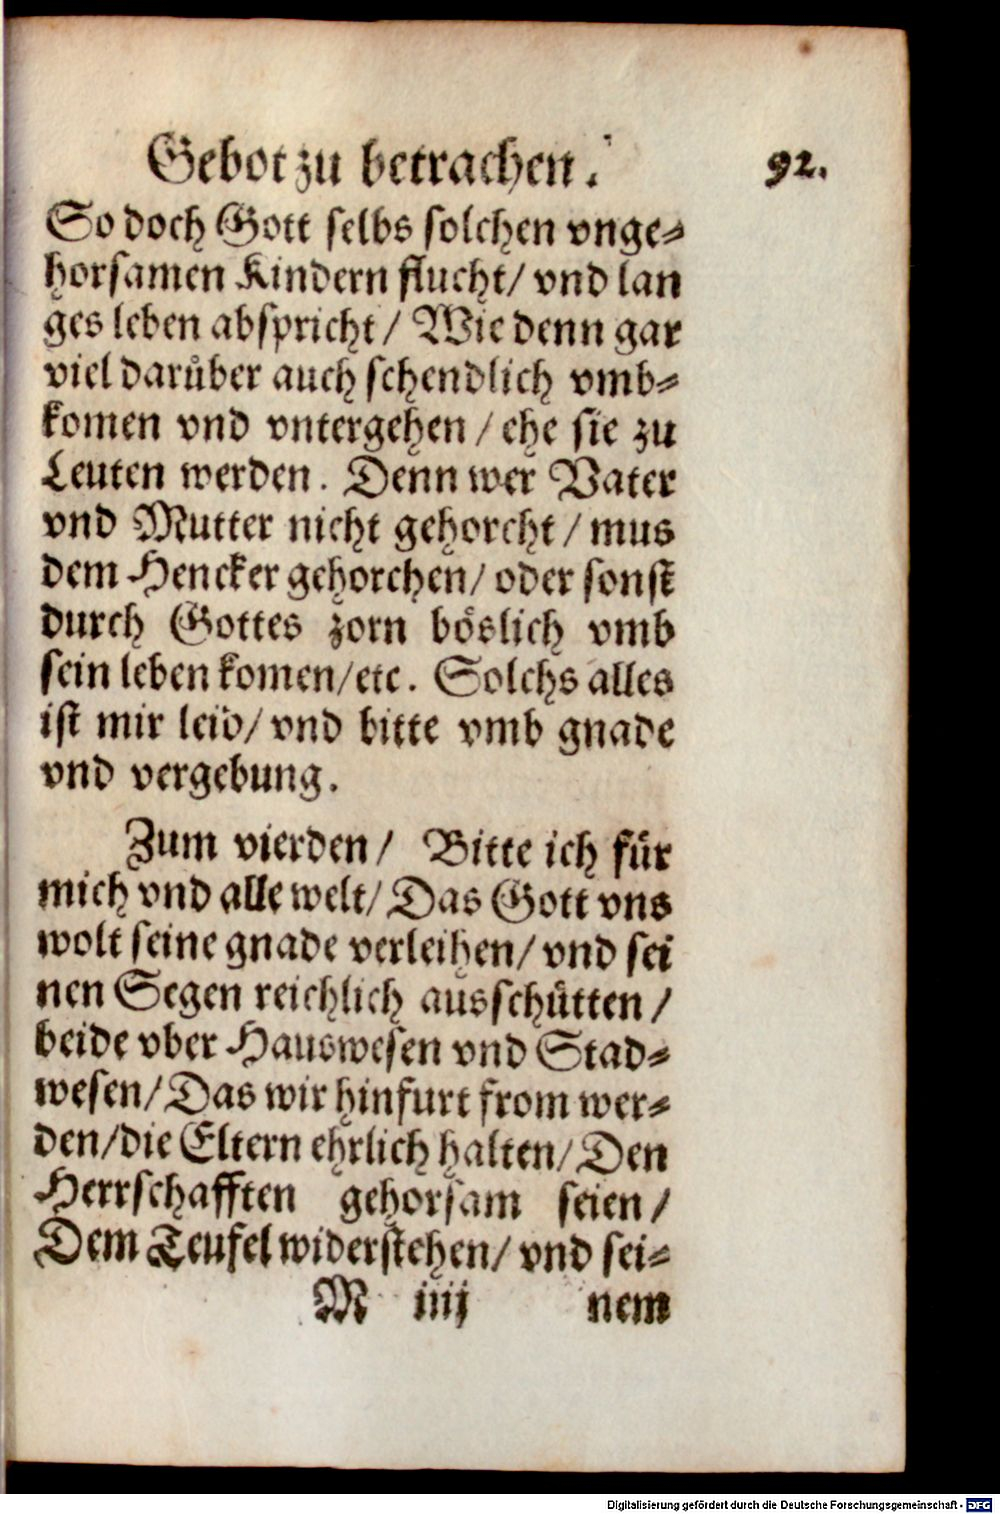 Gebot zu betrachen. 92.
So doch Gott selbs solchen vnge⸗
horsamen Kindern flucht/ vnd lan
ges leben abspricht/ Wie denn gar
viel darůber auch schendlich vmb⸗
komen vnd vntergehen / ehe sie zu
Leuten werden. Denn wer Vater
vnd Mutter nicht gehorcht / mus
dem Hencker gehorchen/ oder sonst
durch Gottes zorn böslich vmb
sein leben komen/etc. Solchs alles
ist mir leid/ vnd bitte vmb gnade
vnd vergebung.
Zum vierden/ Bitte ich für
mich vnd alle welt/ Das Gott vns
wolt seine gnade verleihen/ vnd sei
nen Segen reichlich ausschütten /
beide vber Hauswesen vnd Stad⸗
wesen/ Das wir hinfurt from wer⸗
den/die Eltern ehrlich halten/ Den
Herrschafften gehorsam seien /
Dem Teufel widerstehen/ vnd sei⸗
M iiij nem
Digitalisierung gefördert durch die Deutsche Forschungsgemeinschaft - DFG